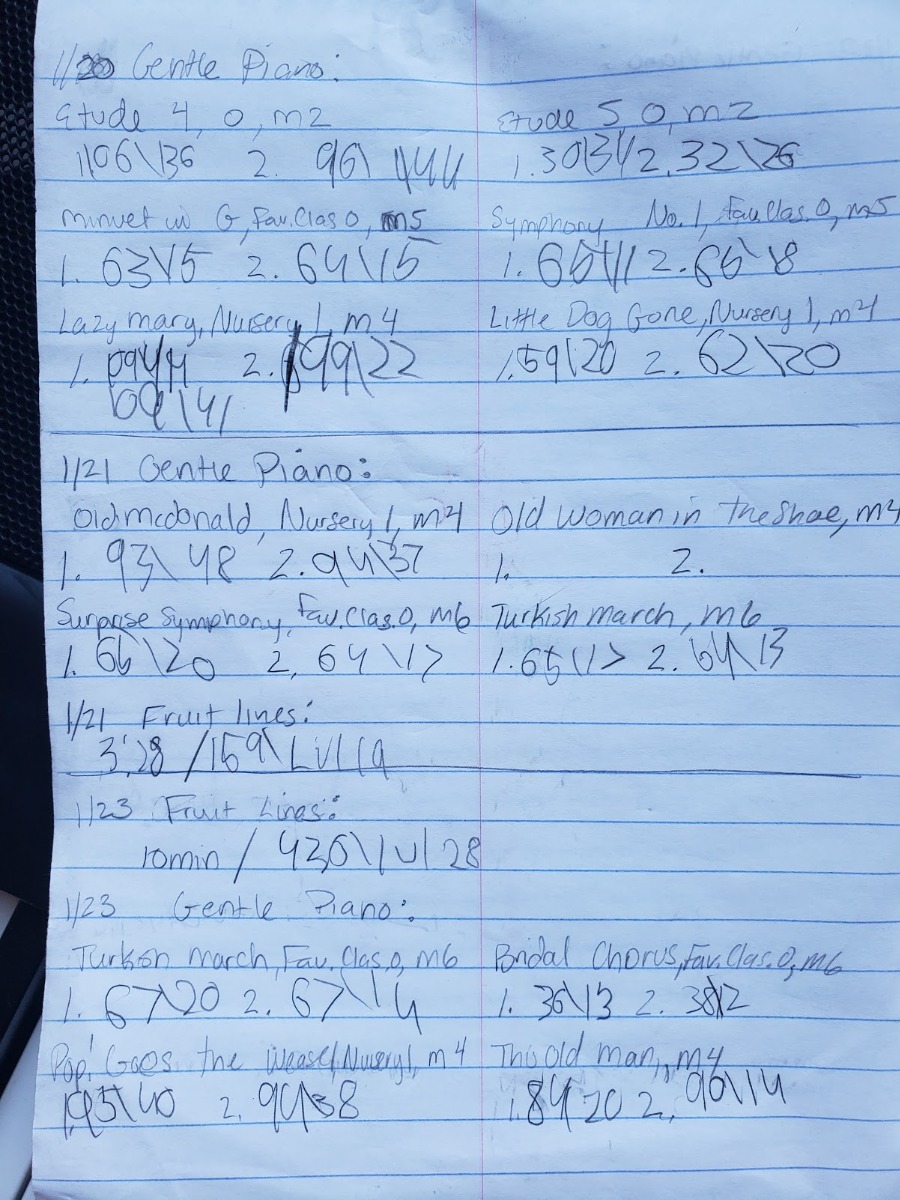 1/20 Gentle Piano:
Etude 4, 0, m2 Etude 5 0, m2
1. 106\36 2. 96\44 1. 30\31 2. 32\26
minuet in G, Fav. Clas 0, m5 Symphony No. 1, Fav. Clas. 0, m5
1. 63\15 2. 64\15 1. 65\11 2. 66\8
Lazy mary, Nursery 1, m4 Little Dog Gone, Nursery 1, m4
1. 2. 99\22 1. 59\20 2. 62\20
\41
1/21 Gentle Piano:
Old mcdonald, Nursery 1, m4 Old Woman in the Shoe, m4
1. 93\48 2. 94\37 1. 2.
Surprise Symphony, Fav. Clas. 0, m6 Turkish march, m6
1. 66\20 2. 64\17 1. 65\17 2. 64\13
1/21 Fruit lines:
3:28 /159\ Lvl 19
1/23 Fruit Lines:
10min / 430\ lvl 28
1/23 Gentle Piano:
Turkish march, Fav. Clas. 0, m6 Bridal Chorus, Fav. Clas. 0, m6
1. 67\20 2. 67\14 1. 36\13 2. 38\12
Pop! Goes the Weasel, Nursery 1, m4 This Old man, m4
1. 93\40 2. 94\38 1. 84\20 2. 90\14